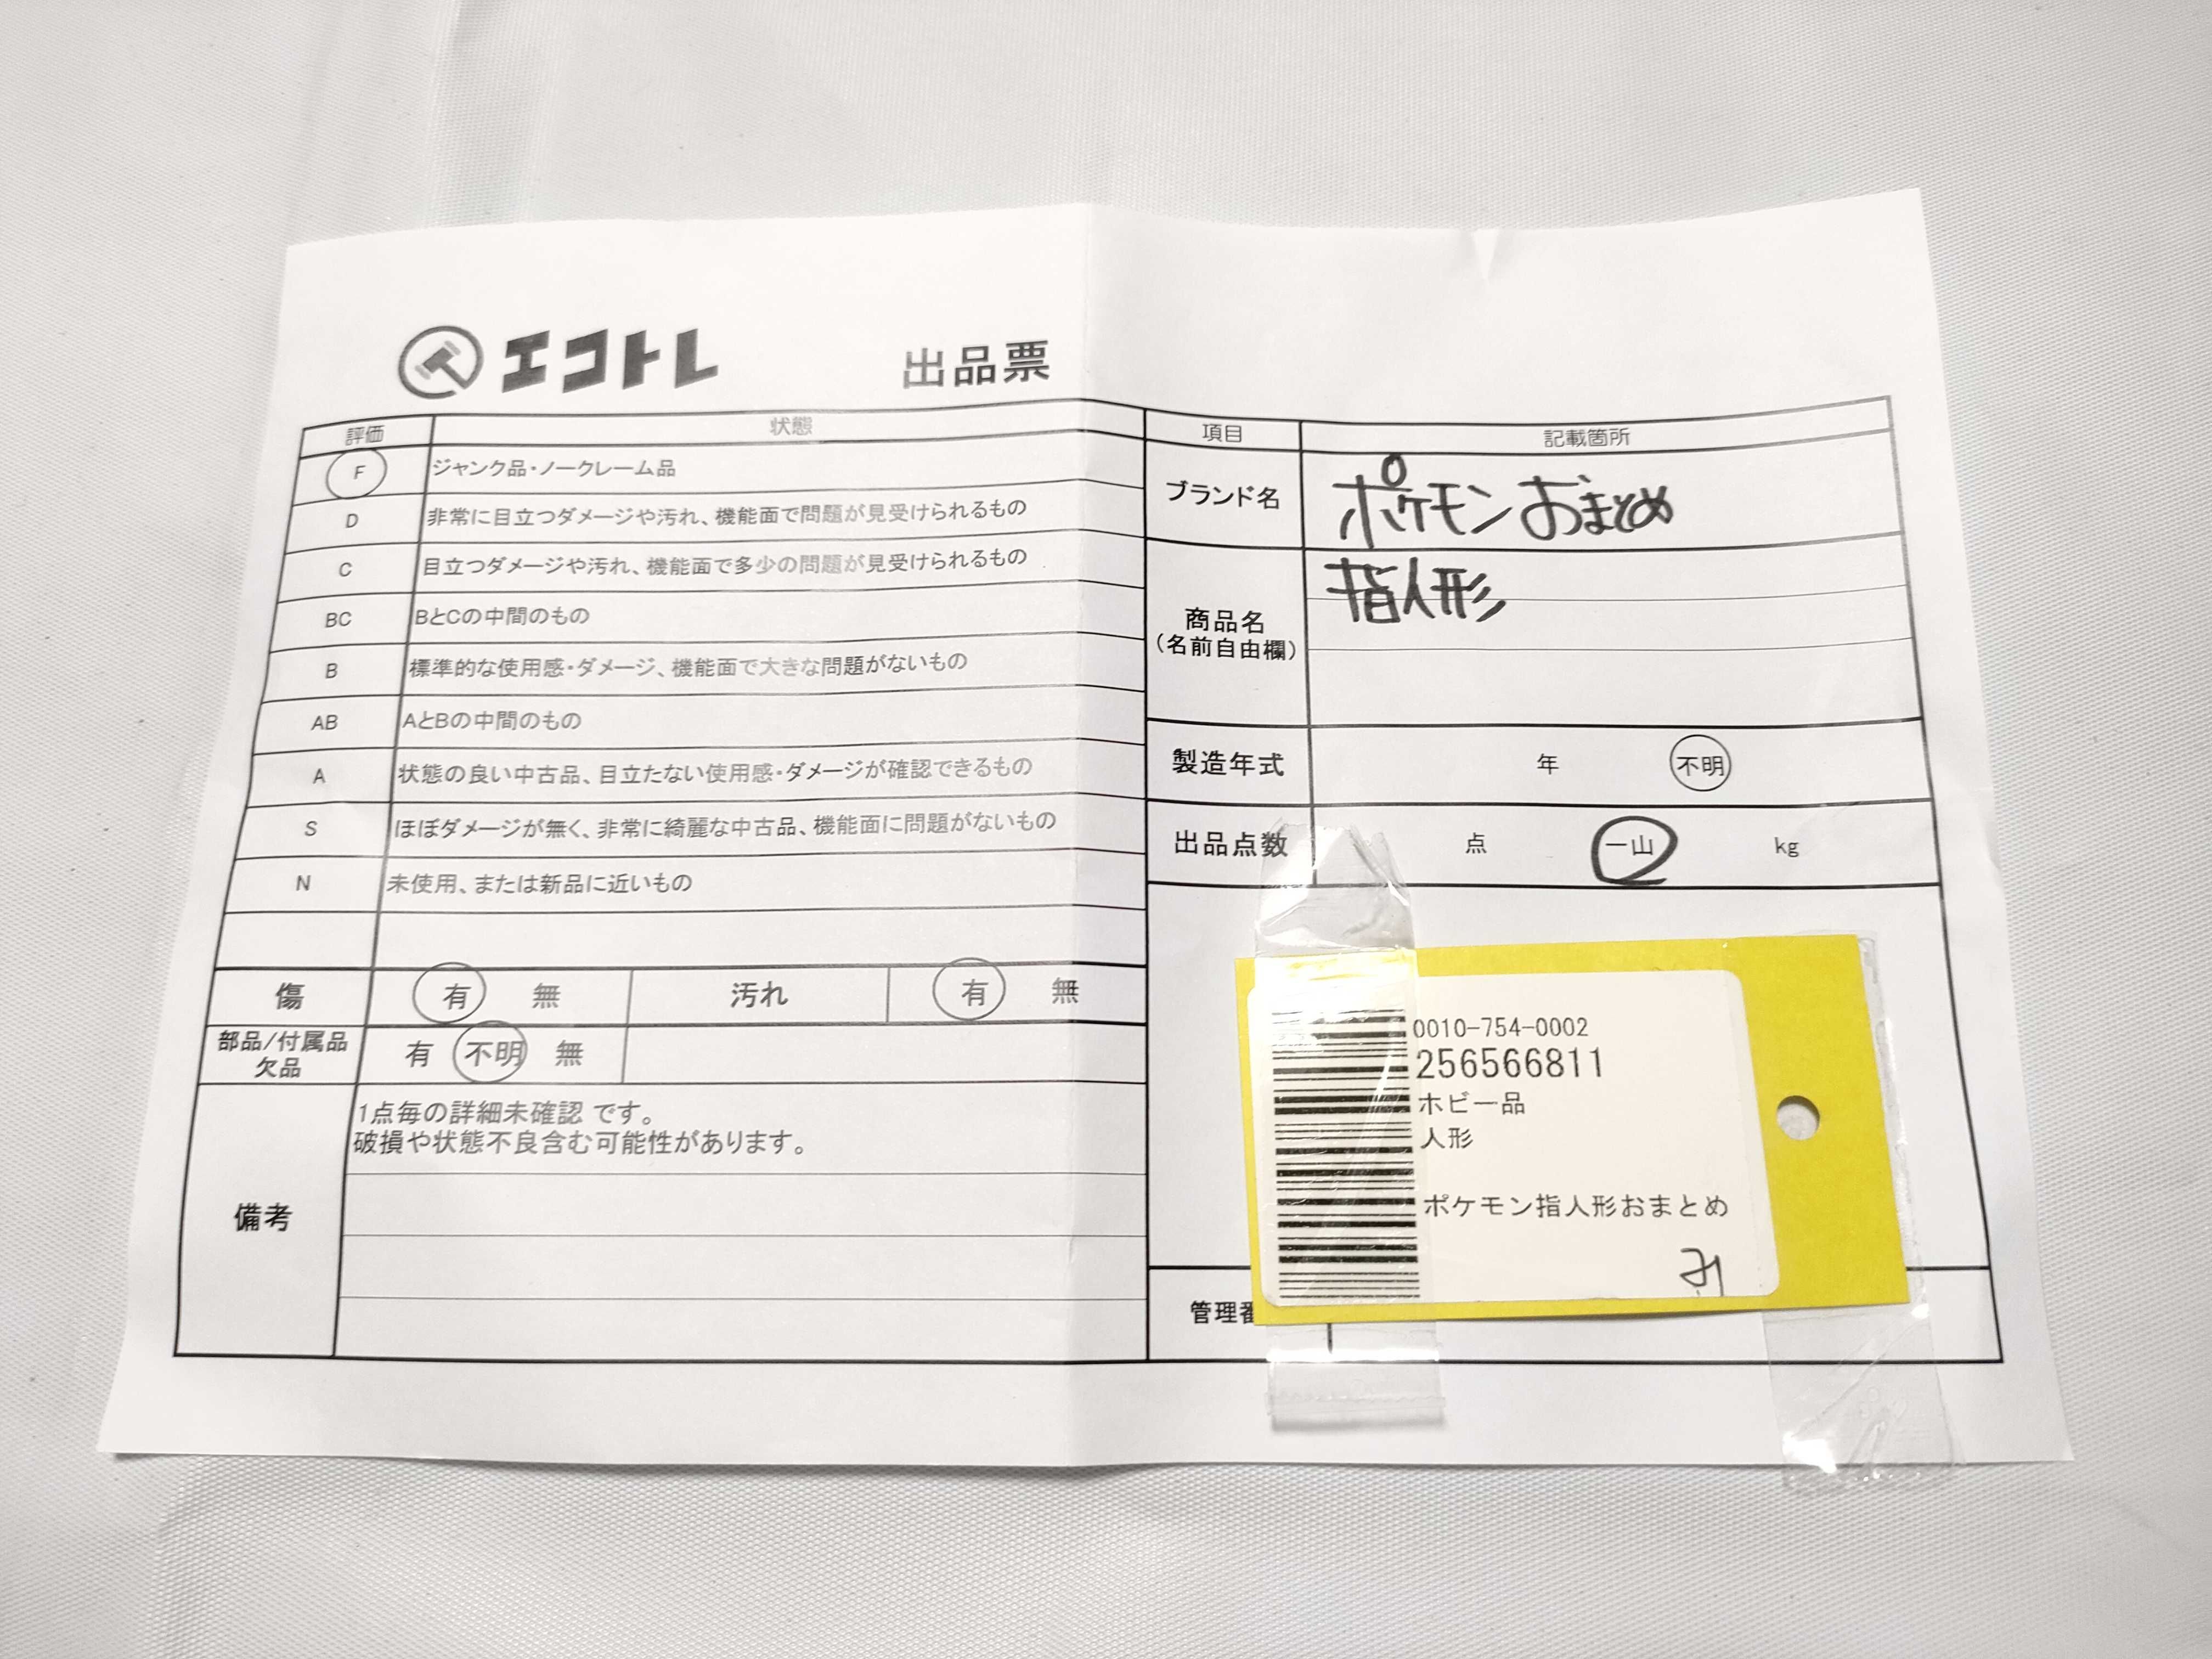 エコトレ 出品票
評価 状態
F ジャンク品・ノークレーム品
D 非常に目立つダメージや汚れ、機能面で問題が見受けられるもの
C 目立つダメージや汚れ、機能面で多少の問題が見受けられるもの
BC BとCの中間のもの
B 標準的な使用感・ダメージ、機能面で大きな問題がないもの
AB AとBの中間のもの
A 状態の良い中古品、目立たない使用感・ダメージが確認できるもの
S ほぼダメージが無く、非常に綺麗な中古品、機能面に問題がないもの
N 未使用、または新品に近いもの
傷 有 無 汚れ 有 無
部品/付属品
欠品
有 不明 無
備考
1点毎の詳細未確認 です。
破損や状態不良含む可能性があります。
項目 記載箇所
ブランド名 ポケモンおまとめ
商品名
(名前自由欄)
指人形
製造年式 年 不明
出品点数 点 一山 kg
管理番
0010-754-0002
256566811
ホビー品
人形
ポケモン指人形おまとめ